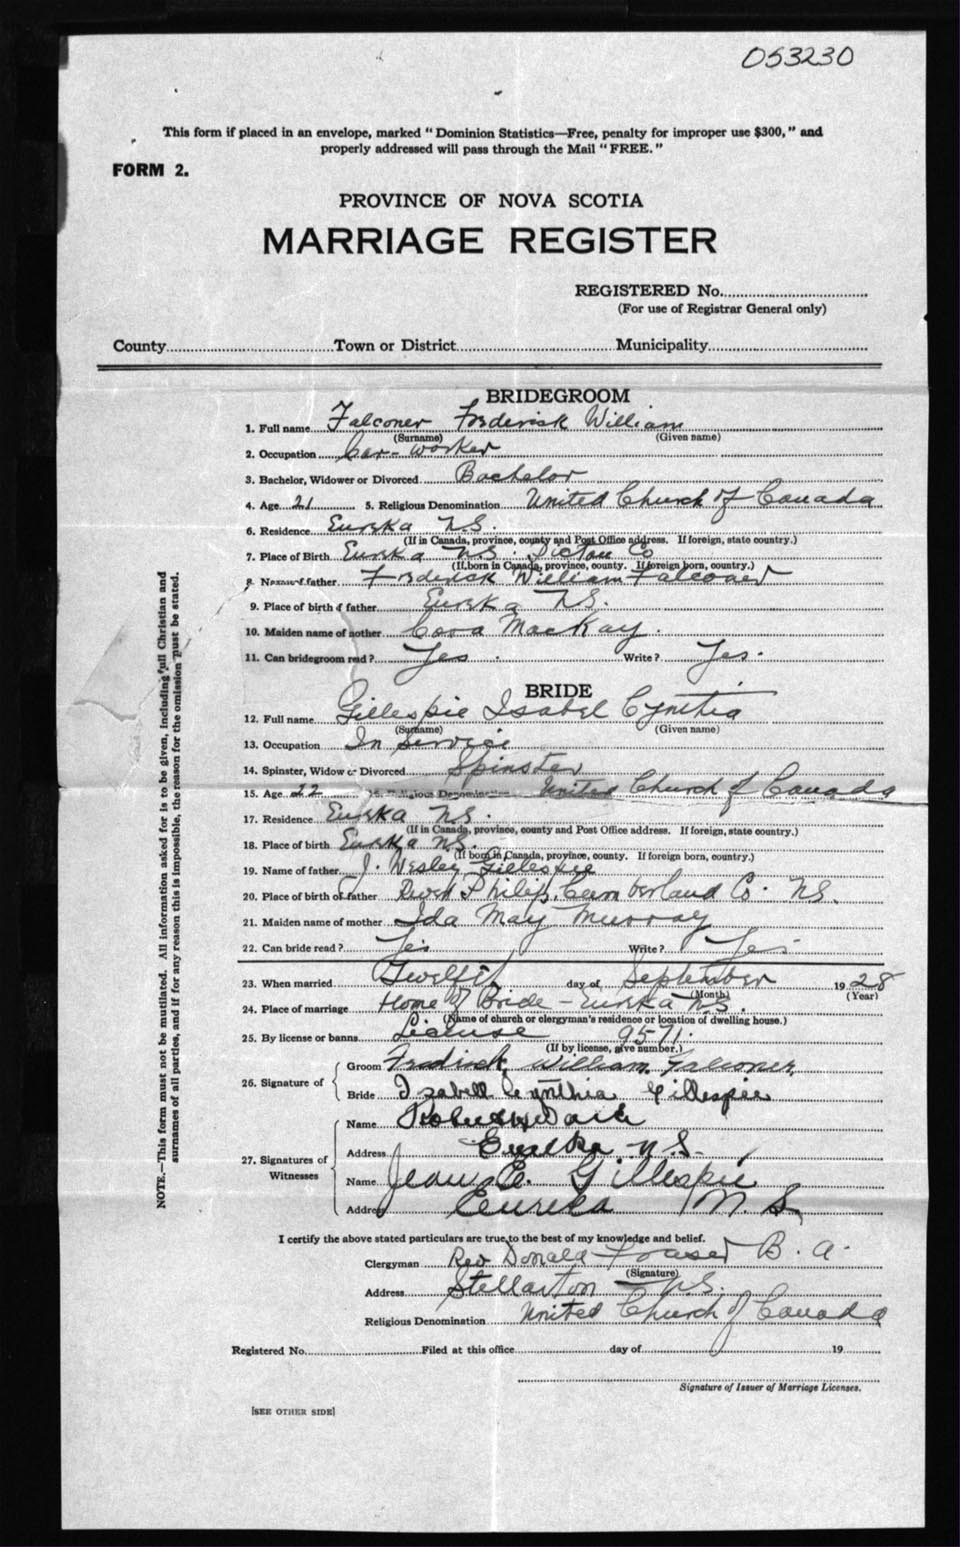 053230
This form if placed in an envelope, marked "Dominion Statistics—Free, penalty for improper use $300," and
properly addressed will pass through the Mail "FREE."
FORM 2.
PROVINCE OF NOVA SCOTIA
MARRIAGE REGISTER
REGISTERED No.
(For use of Registrar General only)
County Town or District Municipality
BRIDEGROOM
1. Full name Falconer Frederick William
(Surname) (Given name)
2. Occupation Car-worker
3. Bachelor, Widower or Divorced Bachelor
4. Age 21 5. Religious Denomination United Church of Canada
6. Residence Eureka N.S.
(If in Canada, province, county and Post Office address. If foreign, state country.)
7. Place of Birth Eureka N.S. Pictou Co
(If born in Canada, province, county. If foreign born, country.)
8. Name of father Frederick William Falconer
9. Place of birth of father Eureka N.S.
10. Maiden name of mother Cora MacKay.
11. Can bridegroom read? Yes. Write? Yes.
BRIDE
12. Full name Gillespie Isabel Cynthia
(Surname) (Given name)
13. Occupation In Service
14. Spinster, Widow or Divorced Spinster
15. Age 22 16. Religious Denomination United Church of Canada
17. Residence Eureka N.S.
(If in Canada, province, county and Post Office address. If foreign, state country.)
18. Place of birth Eureka N.S.
(If born in Canada, province, county. If foreign born, country.)
19. Name of father J. Wesley Gillespie
20. Place of birth of father River Philip, Cumberland Co. N.S.
21. Maiden name of mother Ida May Murray
22. Can bride read? Yes Write? Yes
23. When married Twelfth day of September 1928
(Month) (Year)
24. Place of marriage Home of Bride - Eureka N.S.
(Name of church or clergyman's residence or location of dwelling house.)
25. By license or banns License 9571.
(If by license, give number.)
26. Signature of
Groom Fredrick William Falconer
Bride Isabell Cynthia Gillespie
27. Signatures of Witnesses
Name
Address Eureka N.S.
Name Jean E. Gillespie
Address Eureka N.S.
I certify the above stated particulars are true to the best of my knowledge and belief.
Clergyman Rev Donald Fraser B.A.
(Signature)
Address Stellarton N.S.
Religious Denomination United Church of Canada
Registered No. Filed at this office day of 19
Signature of Issuer of Marriage Licenses.
[SEE OTHER SIDE]
NOTE.—This form must not be mutilated. All information asked for is to be given, including full Christian and
surnames of all parties, and if for any reason this is impossible, the reason for the omission must be stated.